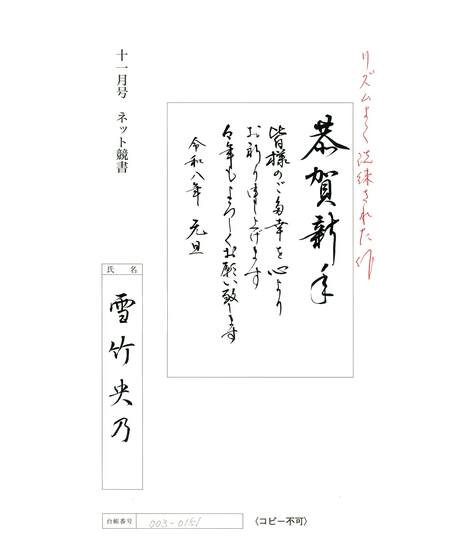 リズムよく洗練された作
恭賀新年
皆様のご多幸を心より
お祈り申し上げます
今年もよろしくお願い致します
令和八年 元旦
十一月号 ネット競書
氏名
雪竹央乃
台帳番号
〈コピー不可〉